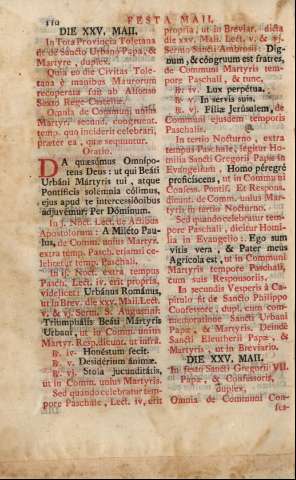 110
FESTA MAII.
DIE XXV. MAII.
In Tota Provincia Toletana
fit de Sancto Urbano Papa, &
Martyre, duplex.
Quia eo die Civitas Tole-
tana è manibus Maurorum
recuperata fuit ab Alfonso
Sexto Rege Castellæ.
Omnia de Communi unius
Martyris secund. congruent.
temp. quo inciderit celebrari,
præter ea, quæ sequuntur.
Oratio.
DA quæsumus Omnipo-
tens Deus: ut qui Beáti
Urbáni Mártyris tui, atque
Pontíficis solémnia cólimus,
ejus apud te intercessiónibus
adjuvémur. Per Dóminum.
In j. Noct. Lect. de Actibus
Apostolorum: A Miléto Pau-
lus, de Comm. unius Martyr.
extra temp. Pasch. etiamsi ce-
lebretur temp. Paschali.
In ij. Noct. extra tempus
Pasch. Lect. iv. erit propria,
videlicet: Urbánus Románus,
ut in Brev. die xxv. Maii. Lect.
v. & vj. Serm. S. Augustini:
Triumphális Beáti Mártyris
Urbani, ut in Comm. unius
Martyr. Resp. dicunt. ut infra.
℟. iv. Honéstum fecit.
℟. v. Desidérium ánimæ.
℟. vj. Stola jucunditátis,
ut in Comm. unius Martyris.
Sed quando celebratur tem-
pore Paschale, Lect. iv. erit
propria, ut in Breviar. dicta
die xxv. Maii. Lect. v. & vj.
Sermo Sancti Ambrosii: Dig-
num, & cóngruum est fratres,
de Communi Martyris tem-
pore Paschali, & tunc.
℟. iv. Lux perpétua.
℟. v. In servis suis.
℟. vj. Filiæ Jerúsalem, de
Communi ejusdem temporis
Paschalis.
In tertio Nocturno, extra
tempus Paschale, legitur Ho-
milia Sancti Gregorii Papæ in
Evangelium: Homo péregrè
proficíscens, ut in Communi
Confess. Pontif. Et Respons.
dicunt. de Comm. unius Mar-
tyris in tertio Nocturno.
Sed quando celebratur tem-
pore Paschali, dicitur Homi-
lia in Evangelio: Ego sum
vitis vera, & Pater meus
Agrícola est, ut in Communi
Martyris tempore Paschali,
cum suis Responsoriis.
In secundis Vesperis à Ca-
pitulo fit de Sancto Philippo
Confessore, dupl. cum com-
memoratione Sancti Urbani
Papæ, & Martyris. Deinde
Sancti Eleutherii Papæ, &
Martyris, ut in Breviario.
DIE XXV. MAII.
In festo Sancti Gregorii VII.
Papæ, & Confessoris,
duplex.
Omnia de Communi Con-
fes-